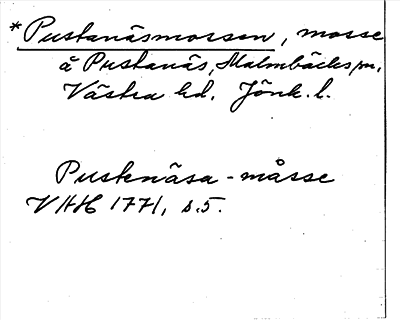 *Pustanäsmossen, mosse
å Pustanäs, Malmbäcks sn,
Västra hd. Jönk. l.
Pustenäsa-måsse
VHH 1771, s. 5.